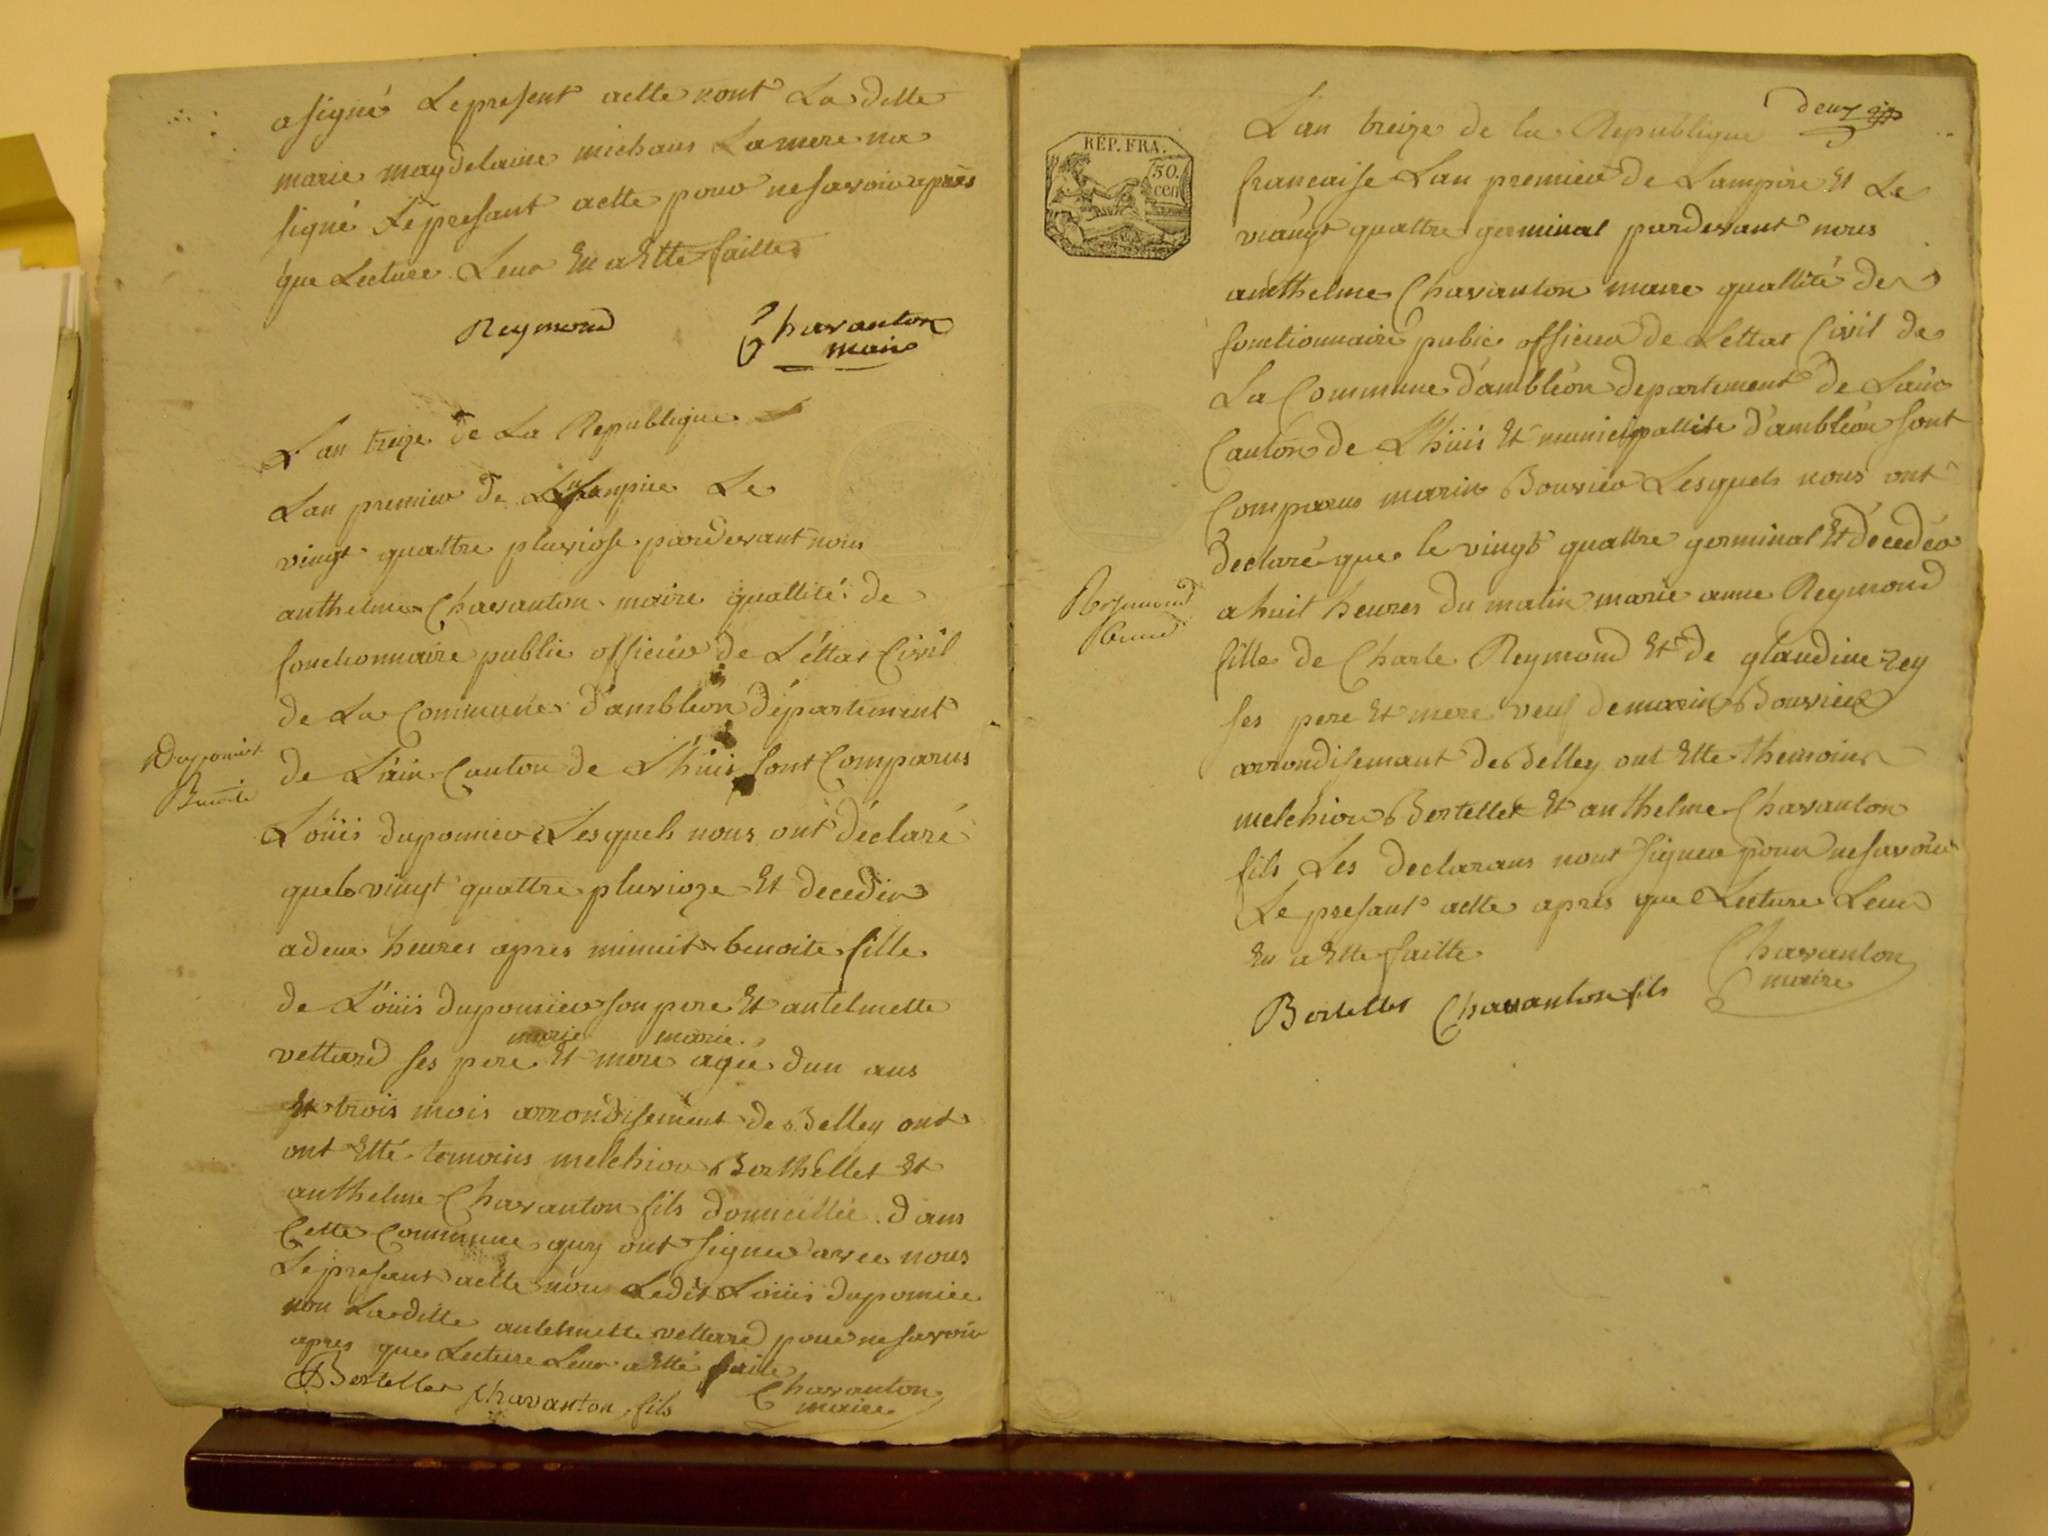 a signé Le present actte nont La ditte
marie magdelaine michaus La mere na
signé Le presant actte pour ne savoir apres
que Lecture Leur En a Ette faitte
Reymond Chavanton
maire
L'an treize de La Republique
L'an premier de Lampire Le
vingt quattre pluviose pardevant nous
anthelme Chavanton maire quallité de
fonctionnaire public officier de L'éttat Civil
de La Commune d'ambléon département
de L'ain Canton de L'huis sont Comparus
Duponier
Benoite
Loüis duponier Lesquels nous ont déclaré
que le vingt quattre pluvioze Et decedér
a deux heures apres minuit benoite fille
de Loüis duponier son pere Et antelmette
marie marie
vettard ses pere Et mere agée dun ans
Et trois mois arrondisement de Belley ont
ont Etté temoins melchior Berthellet Et
anthelme Chavanton fils domicillié dans
Cette Commune quy ont signer avec nous
Le presant actte non Ledit Loüis duponier
non La ditte antelmette vettard pour ne savoir
apres que Lecture Leur a Etté faite
Bertellet Chavanton fils Chavanton
maire
deux
REP. FRA.
50.
cen
L'an treize de la Republique
francaise Lan premier de Lampire Et Le
viangt quattre germinal pardevant nous
anthelme Chavanton maire quallité de
fonctionnaire pubic officier de L'ettat Civil de
La Commune d'ambléon departement de L'ain
Canton de L'hüis Et municipallité d'ambléon sont
Comparus marin Bouvier Lesquels nous ont
declaré que le vingt quattre germinal Et décedéo
Reymond
a huit heures du matin marie anne Reymond
fille de Charle Reymond Et de glaudine rey
ses pere Et mere veuf de marin Bouvier
arrondisemant de Belley ont Ette themoins
melchior Bertellet Et anthelme Chavanton
fils Les declarans nont signer pour ne savoir
Le presant actte apres que Lecture Leur
En a Ette faitte
Chavanton
maire
Bertellet Chavanton fils